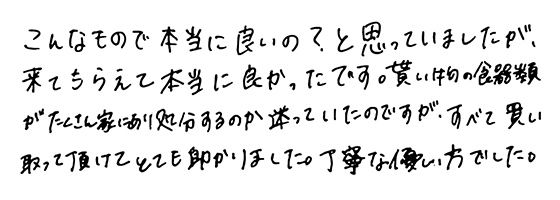 こんなもので本当に良いの?と思っていましたが、
来てもらえて本当に良かったです。貰い物の食器類
がたくさん家にあり処分するのか迷っていたのですが、すべて買い
取って頂けてとても助かりました。丁寧な優しい方でした。